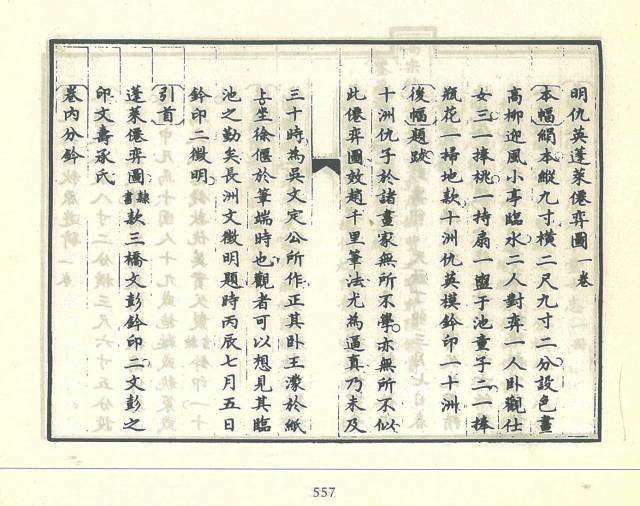 明仇英蓬萊僊弈圖一卷
本幅絹本縱九寸橫二尺九寸二分設色畫
高柳迎風小亭臨水二人對弈一人卧觀仕
女三一捧桃一持扇一盥于池童子二一捧
瓶花一掃地款十洲仇英摸鈐印一十洲
後幅題跋
十洲仇子於諸畫家無所不學亦無所不似
此僊弈圖效趙千里筆法尤為逼真乃未及
三十時為吳文定公所作正其卧王濛於紙
上坐徐偃於筆端時也觀者可以想見其臨
池之勤矣長洲文徵明題時丙辰七月五日
鈐印二徵明
引首
蓬萊僊弈圖隸書款三橋文彭鈐印二文彭之
印文壽承氏
卷內分鈐
557